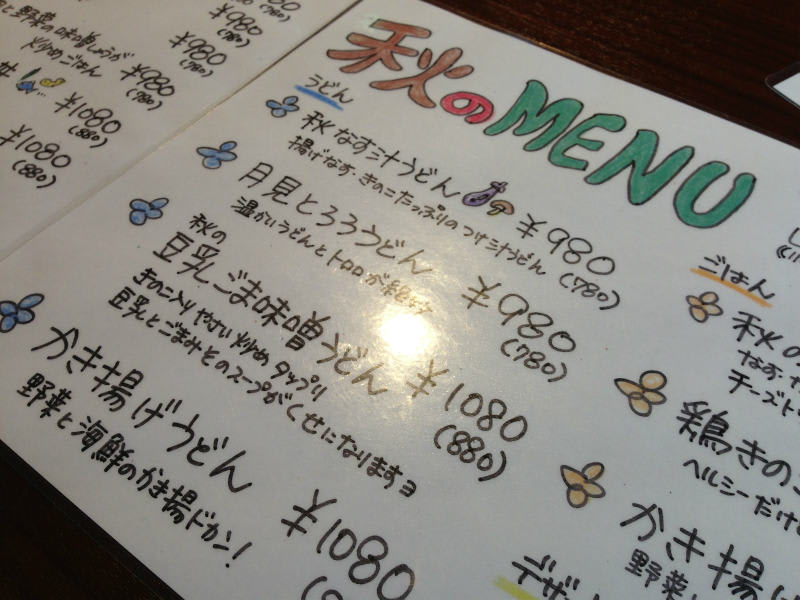 ¥980
(780)
と野菜の味噌しょうが
炒めごはん
¥980
(780)
¥980
(780)
¥1080
(880)
¥1080
(880)
秋のMENU
うどん
秋なす汁うどん ¥980
揚げなす・きのこたっぷりのつけ汁うどん (780)
月見とろろうどん ¥980
温かいうどんとトロロが (780)
秋の
豆乳ごま味噌うどん ¥1080
きのこ入りやさい炒めタップリ (880)
豆乳とごまみそのスープがくせになりますョ
かき揚げうどん ¥1080
野菜と海鮮のかき揚ドカン!
ごはん
秋の
なす・
チーズト
鶏きのこ
ヘルシーだけ
かき揚げ
野菜
デザート